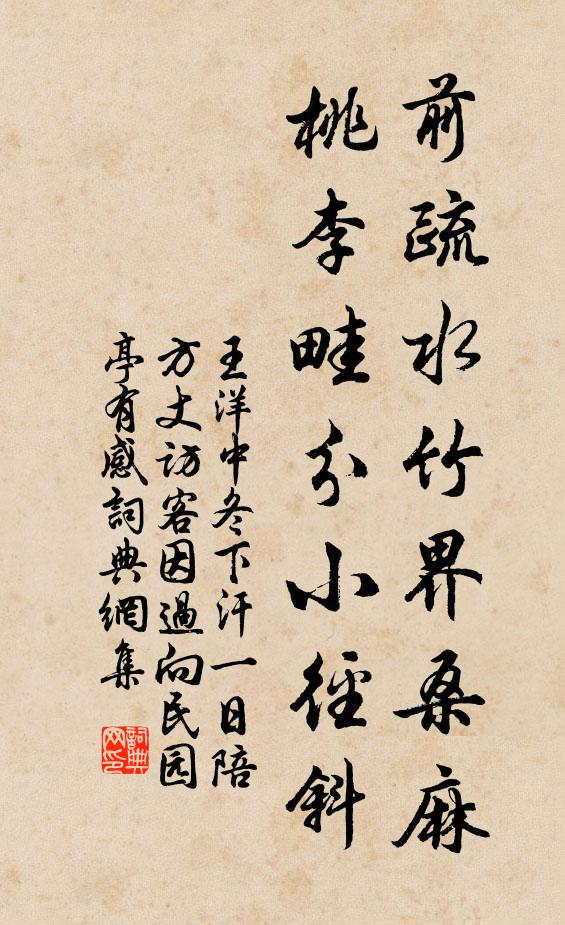 前疏水竹界桑麻
桃李畦分小径斜
王洋中冬下汗一日陪
方丈访客因過向民园
亭有感詞典網集
詞典
网印